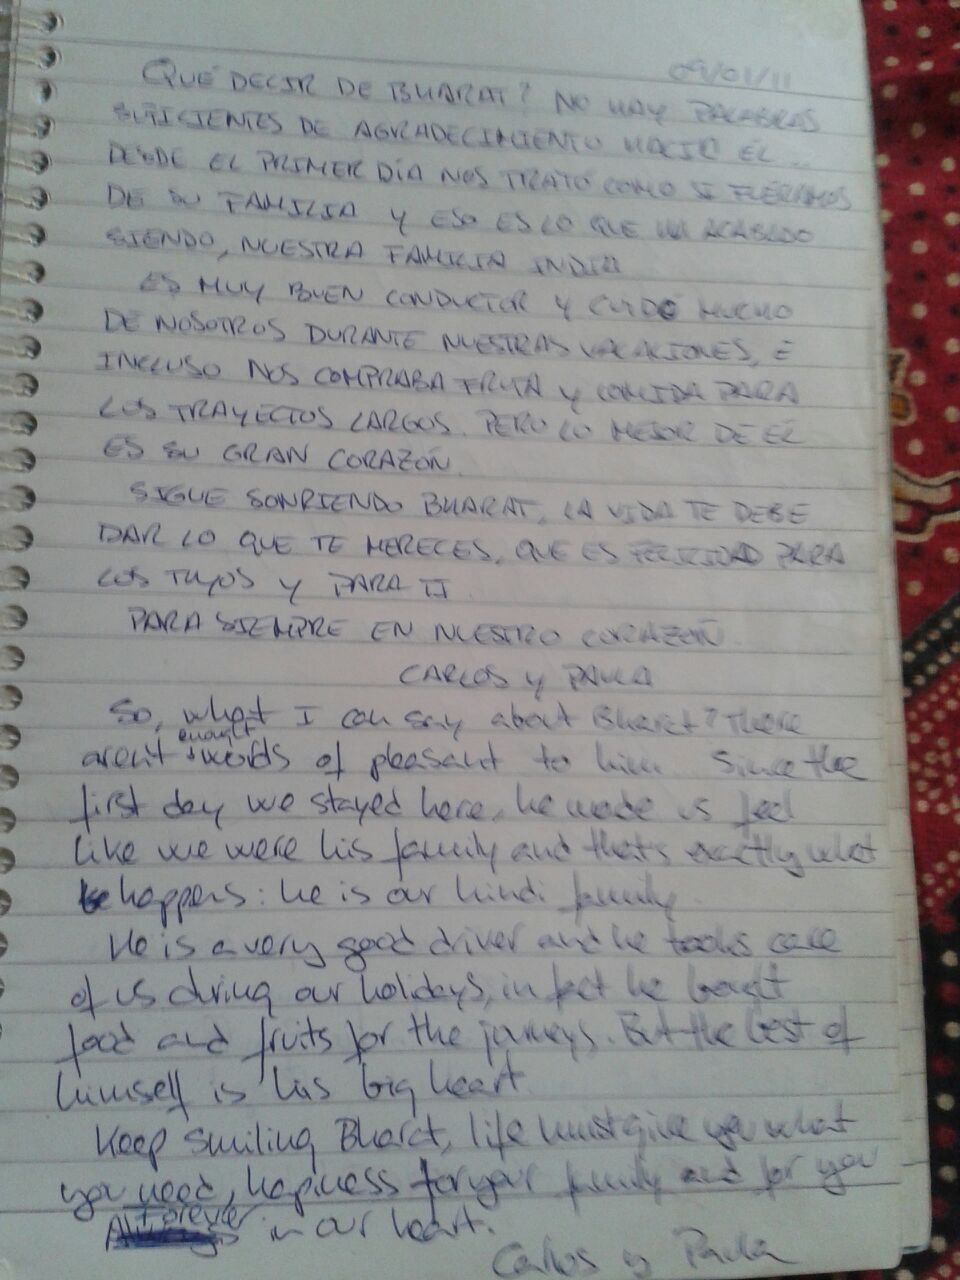 09/01/11
QUÉ DECIR DE BHARAT? NO HAY PALABRAS
SUFICIENTES DE AGRADECIMIENTO HACIA ÉL...
DESDE EL PRIMER DÍA NOS TRATÓ COMO SI FUÉRAMOS
DE SU FAMILIA Y ESO ES LO QUE HA ACABADO
SIENDO, NUESTRA FAMILIA INDIA
ES MUY BUEN CONDUCTOR Y CUIDÓ MUCHO
DE NOSOTROS DURANTE NUESTRAS VACACIONES, E
INCLUSO NOS COMPRABA FRUTA Y COMIDA PARA
LOS TRAYECTOS LARGOS. PERO LO MEJOR DE ÉL
ES SU GRAN CORAZÓN.
SIGUE SONRIENDO BHARAT, LA VIDA TE DEBE
DAR LO QUE TE MERECES, QUE ES FELICIDAD PARA
LOS TUYOS Y PARA TI.
PARA SIEMPRE EN NUESTRO CORAZÓN.
CARLOS Y PAULA
So, what I can say about Bharat? There
aren't enought words of pleasant to him. Since the
first day we stayed here, he made us feel
like we were his family and that's exactly what
happens: he is our hindi family.
He is a very good driver and he tooks care
of us during our holidays, in fact he bought
food and fruits for the journeys. But the best of
himself is his big heart.
Keep smiling Bharat, life must give you what
you need, hapiness for your family and for you
Forever in our heart.
Carlos y Paula